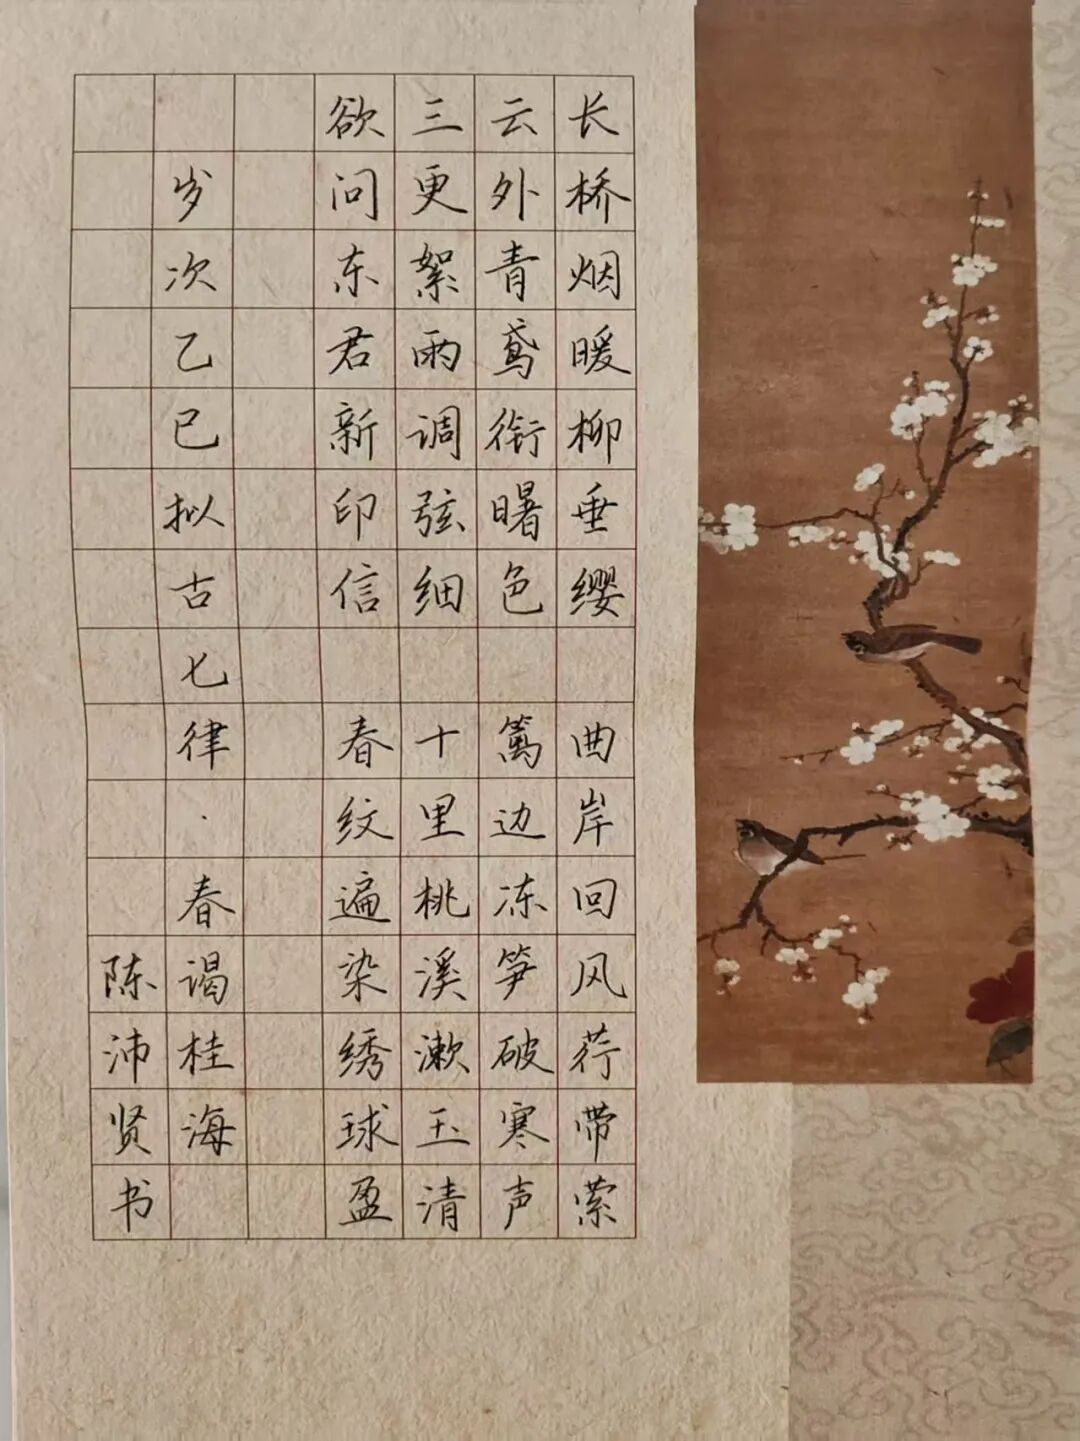 长桥烟暖柳垂缨 曲岸回风荇带萦
云外青鸢衔曙色 篱边冻笋破寒声
三更絮雨调弦细 十里桃溪漱玉清
欲问东君新印信 春纹遍染绣球盈
岁次乙巳拟古七律·春谒桂海
陈沛贤书